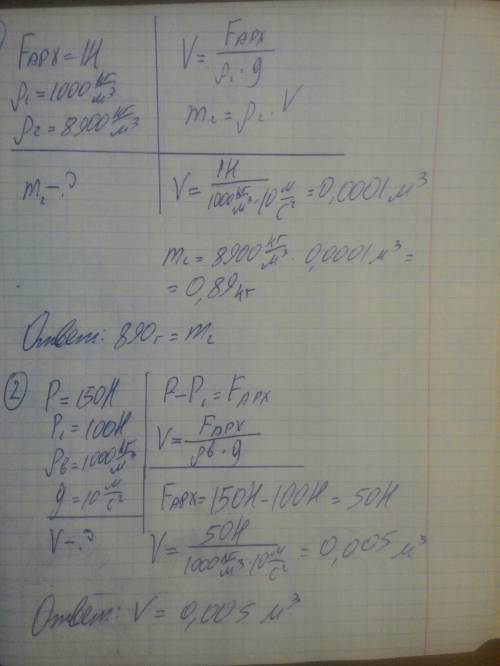 Fарх = 1Н
ρ₁ = 1000 кг/м³
ρ₂ = 8900 кг/м³
m₂ - ?
V = Fарх / ρ₁ · g
m₂ = ρ₂ · V
V = 1Н / 1000 кг/м³ · 10 м/с² = 0,0001 м³
m₂ = 8900 кг/м³ · 0,0001 м³ =
= 0,89 кг
Ответ: 890 г = m₂
② P = 150Н
P₁ = 100Н
ρв = 1000 кг/м³
g = 10 м/с²
V - ?
P - P₁ = Fарх
V = Fарх / ρв · g
Fарх = 150Н - 100Н = 50Н
V = 50Н / 1000 кг/м³ · 10 м/с² = 0,005 м³
Ответ: V = 0,005 м³